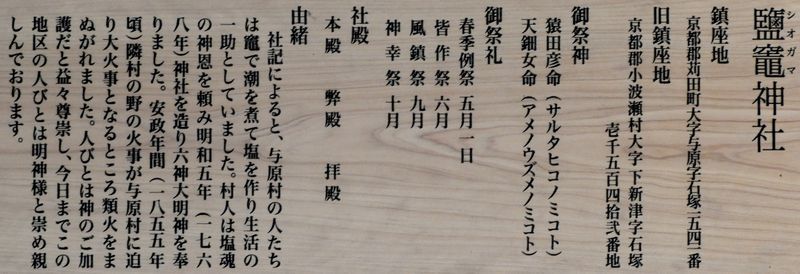 鹽竈神社
シオガマ
鎮座地
京都郡苅田町大字与原字石塚一五四二番
旧鎮座地
京都郡小波瀬村大字下新津字石塚
壱千五百四拾弐番地
御祭神
猿田彦命(サルタヒコノミコト)
天鈿女命(アメノウズメノミコト)
御祭礼
春季例祭 五月一日
皆作祭 六月
風鎮祭 九月
神幸祭 十月
社殿
本殿 弊殿 拝殿
由緒
社記によると、与原村の人たち
は竈で潮を煮て塩を作り生活の
一助としていました。村人は塩魂
の神恩を頼み明和五年(一七六
八年)神社を造り六神大明神を奉
りました。安政年間(一八五五年
頃)隣村の野の火事が与原村に迫
り大火事となるところ類火をま
ぬがれました。人びとは神のご加
護だと益々尊崇し、今日までこの
地区の人びとは明神様と崇め親
しんでおります。